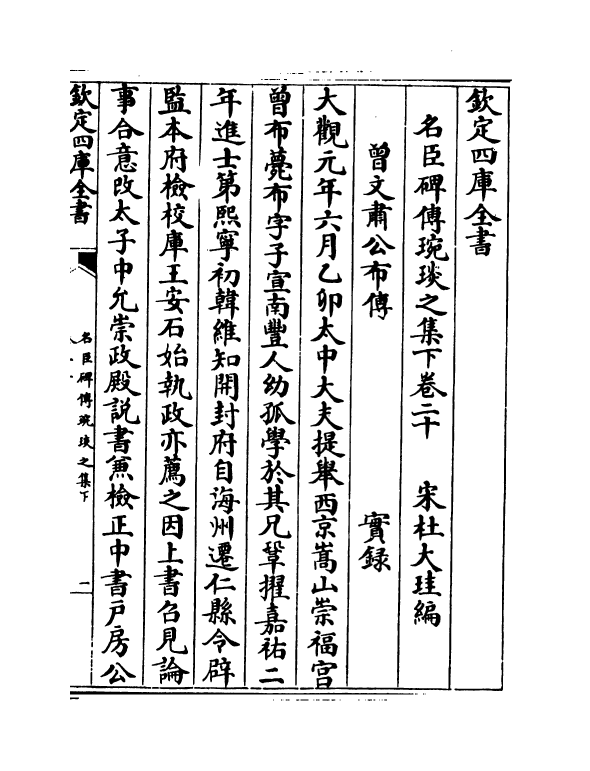 欽定四庫全書
名臣碑傳琬琰之集下卷二十　宋杜大珪編
曾文肅公布傳　實録
大觀元年六月乙卯太中大夫提舉西京嵩山崇福宫
曾布薨布字子宣南豐人幼孤學於其兄鞏擢嘉祐二
年進士第熙寧初韓維知開封府自海州遷仁縣令辟
監本府檢校庫王安石始執政亦薦之因上書召見論
事合意改太子中允崇政殿説書兼檢正中書户房公
欽定四庫全書
名臣碑傳琬琰之集下
一